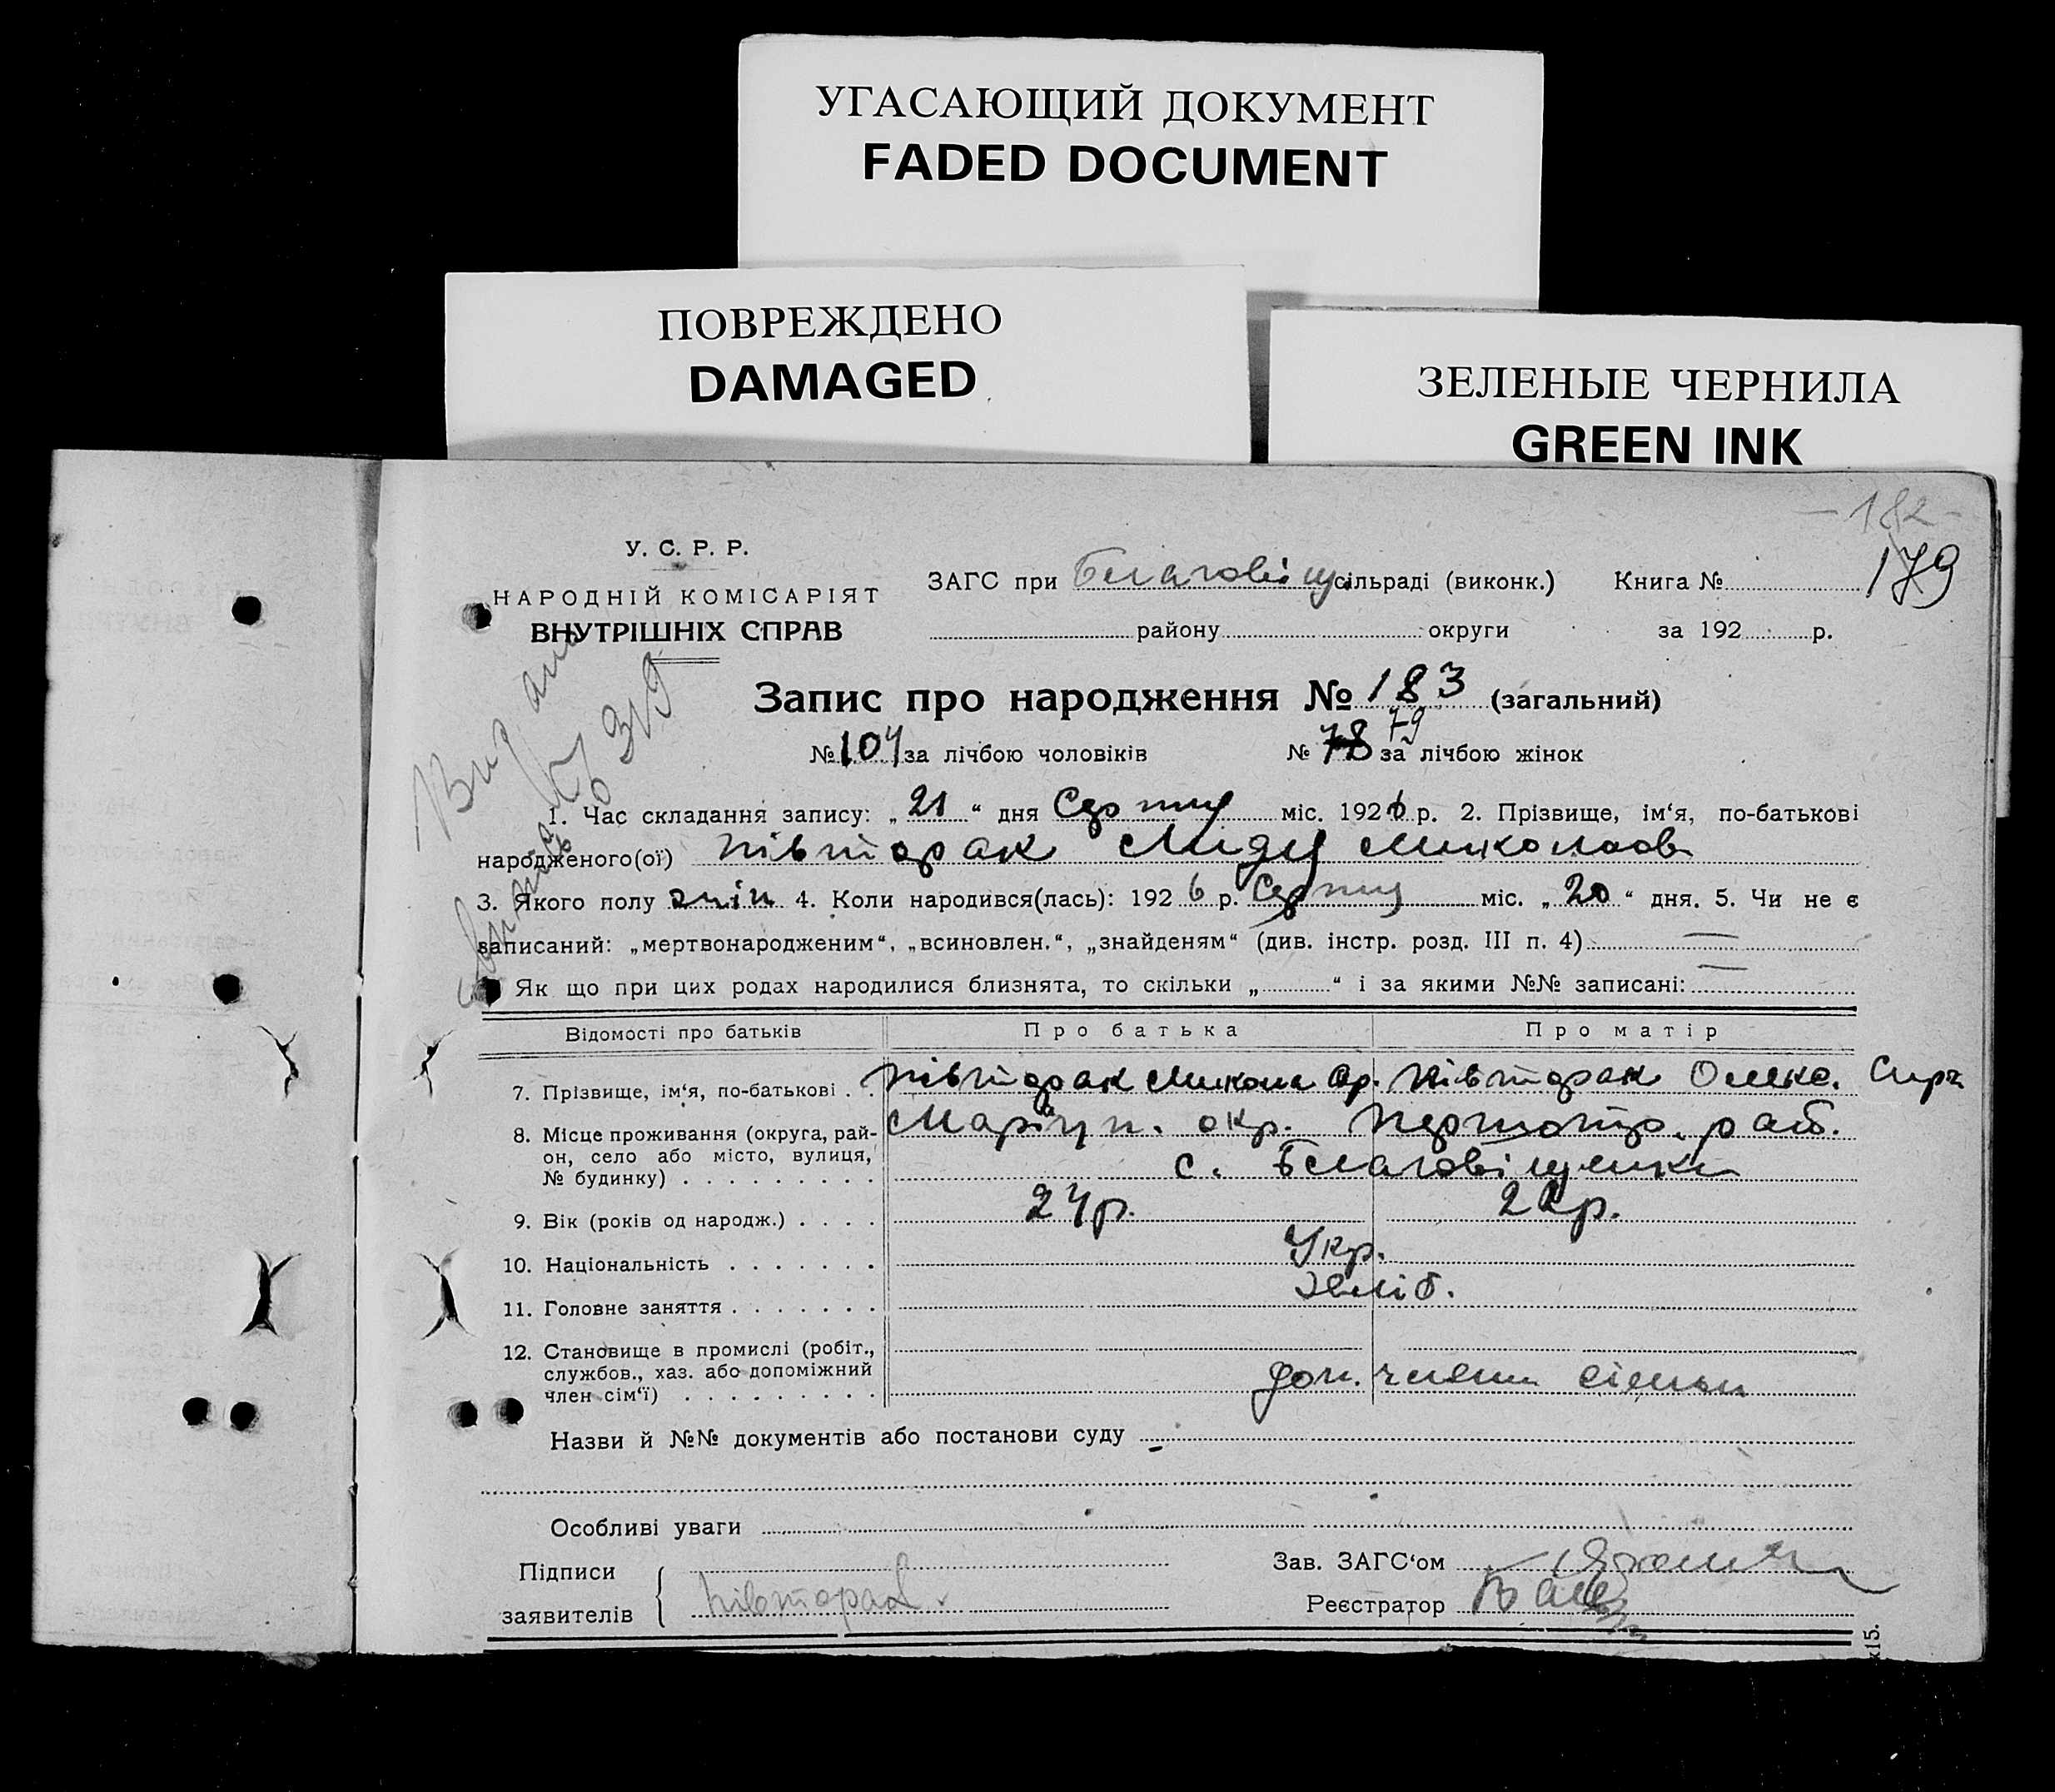 УГАСАЮЩИЙ ДОКУМЕНТ
FADED DOCUMENT
ПОВРЕЖДЕНО
DAMAGED
ЗЕЛЕНЫЕ ЧЕРНИЛА
GREEN INK
- 182 -
179
У. С. Р. Р.
НАРОДНІЙ КОМІСАРІЯТ
ВНУТРІШНІХ СПРАВ
ЗАГС при Благовіщ. сільраді (виконк.) Книга №
району округи за 192 р.
Запис про народження № 183 (загальний)
№ 104 за лічбою чоловіків № 78 79 за лічбою жінок
1. Час складання запису: „ 21 “ дня міс. 1926 р. 2. Прізвище, ім‘я, по-батькові
народженого(ої) Півторак Лиду Миколаов
3. Якого полу жін 4. Коли народився(лась): 192 6 р. міс. „ 20 “ дня. 5. Чи не є
записаний: „мертвонародженим“, „всиновлен.“, „знайденям“ (див. інстр. розд. III п. 4) —
Як що при цих родах народилися близнята, то скільки „ “ і за якими №№ записані: —
Відомості про батьків Про батька Про матір
7. Прізвище, ім‘я, по-батькові . . Півторак Микола Півторак
8. Місце проживання (округа, рай-
он, село або місто, вулиця,
№ будинку) . . . . . . . . .
Маріуп. окр. раб.
с. Благовіщенки
9. Вік (років од народж.) . . . . 24р. 22р.
10. Національність . . . . . . . Укр.
11. Головне заняття . . . . . . . Хліб.
12. Становище в промислі (робіт.,
службов., хаз. або допоміжний
член сім‘ї) . . . . . . . . .
доп. члени сімьи
Назви й №№ документів або постанови суду -
Особливі уваги
Підписи
заявителів Півторак
Зав. ЗАГС‘ом
Реєстратор